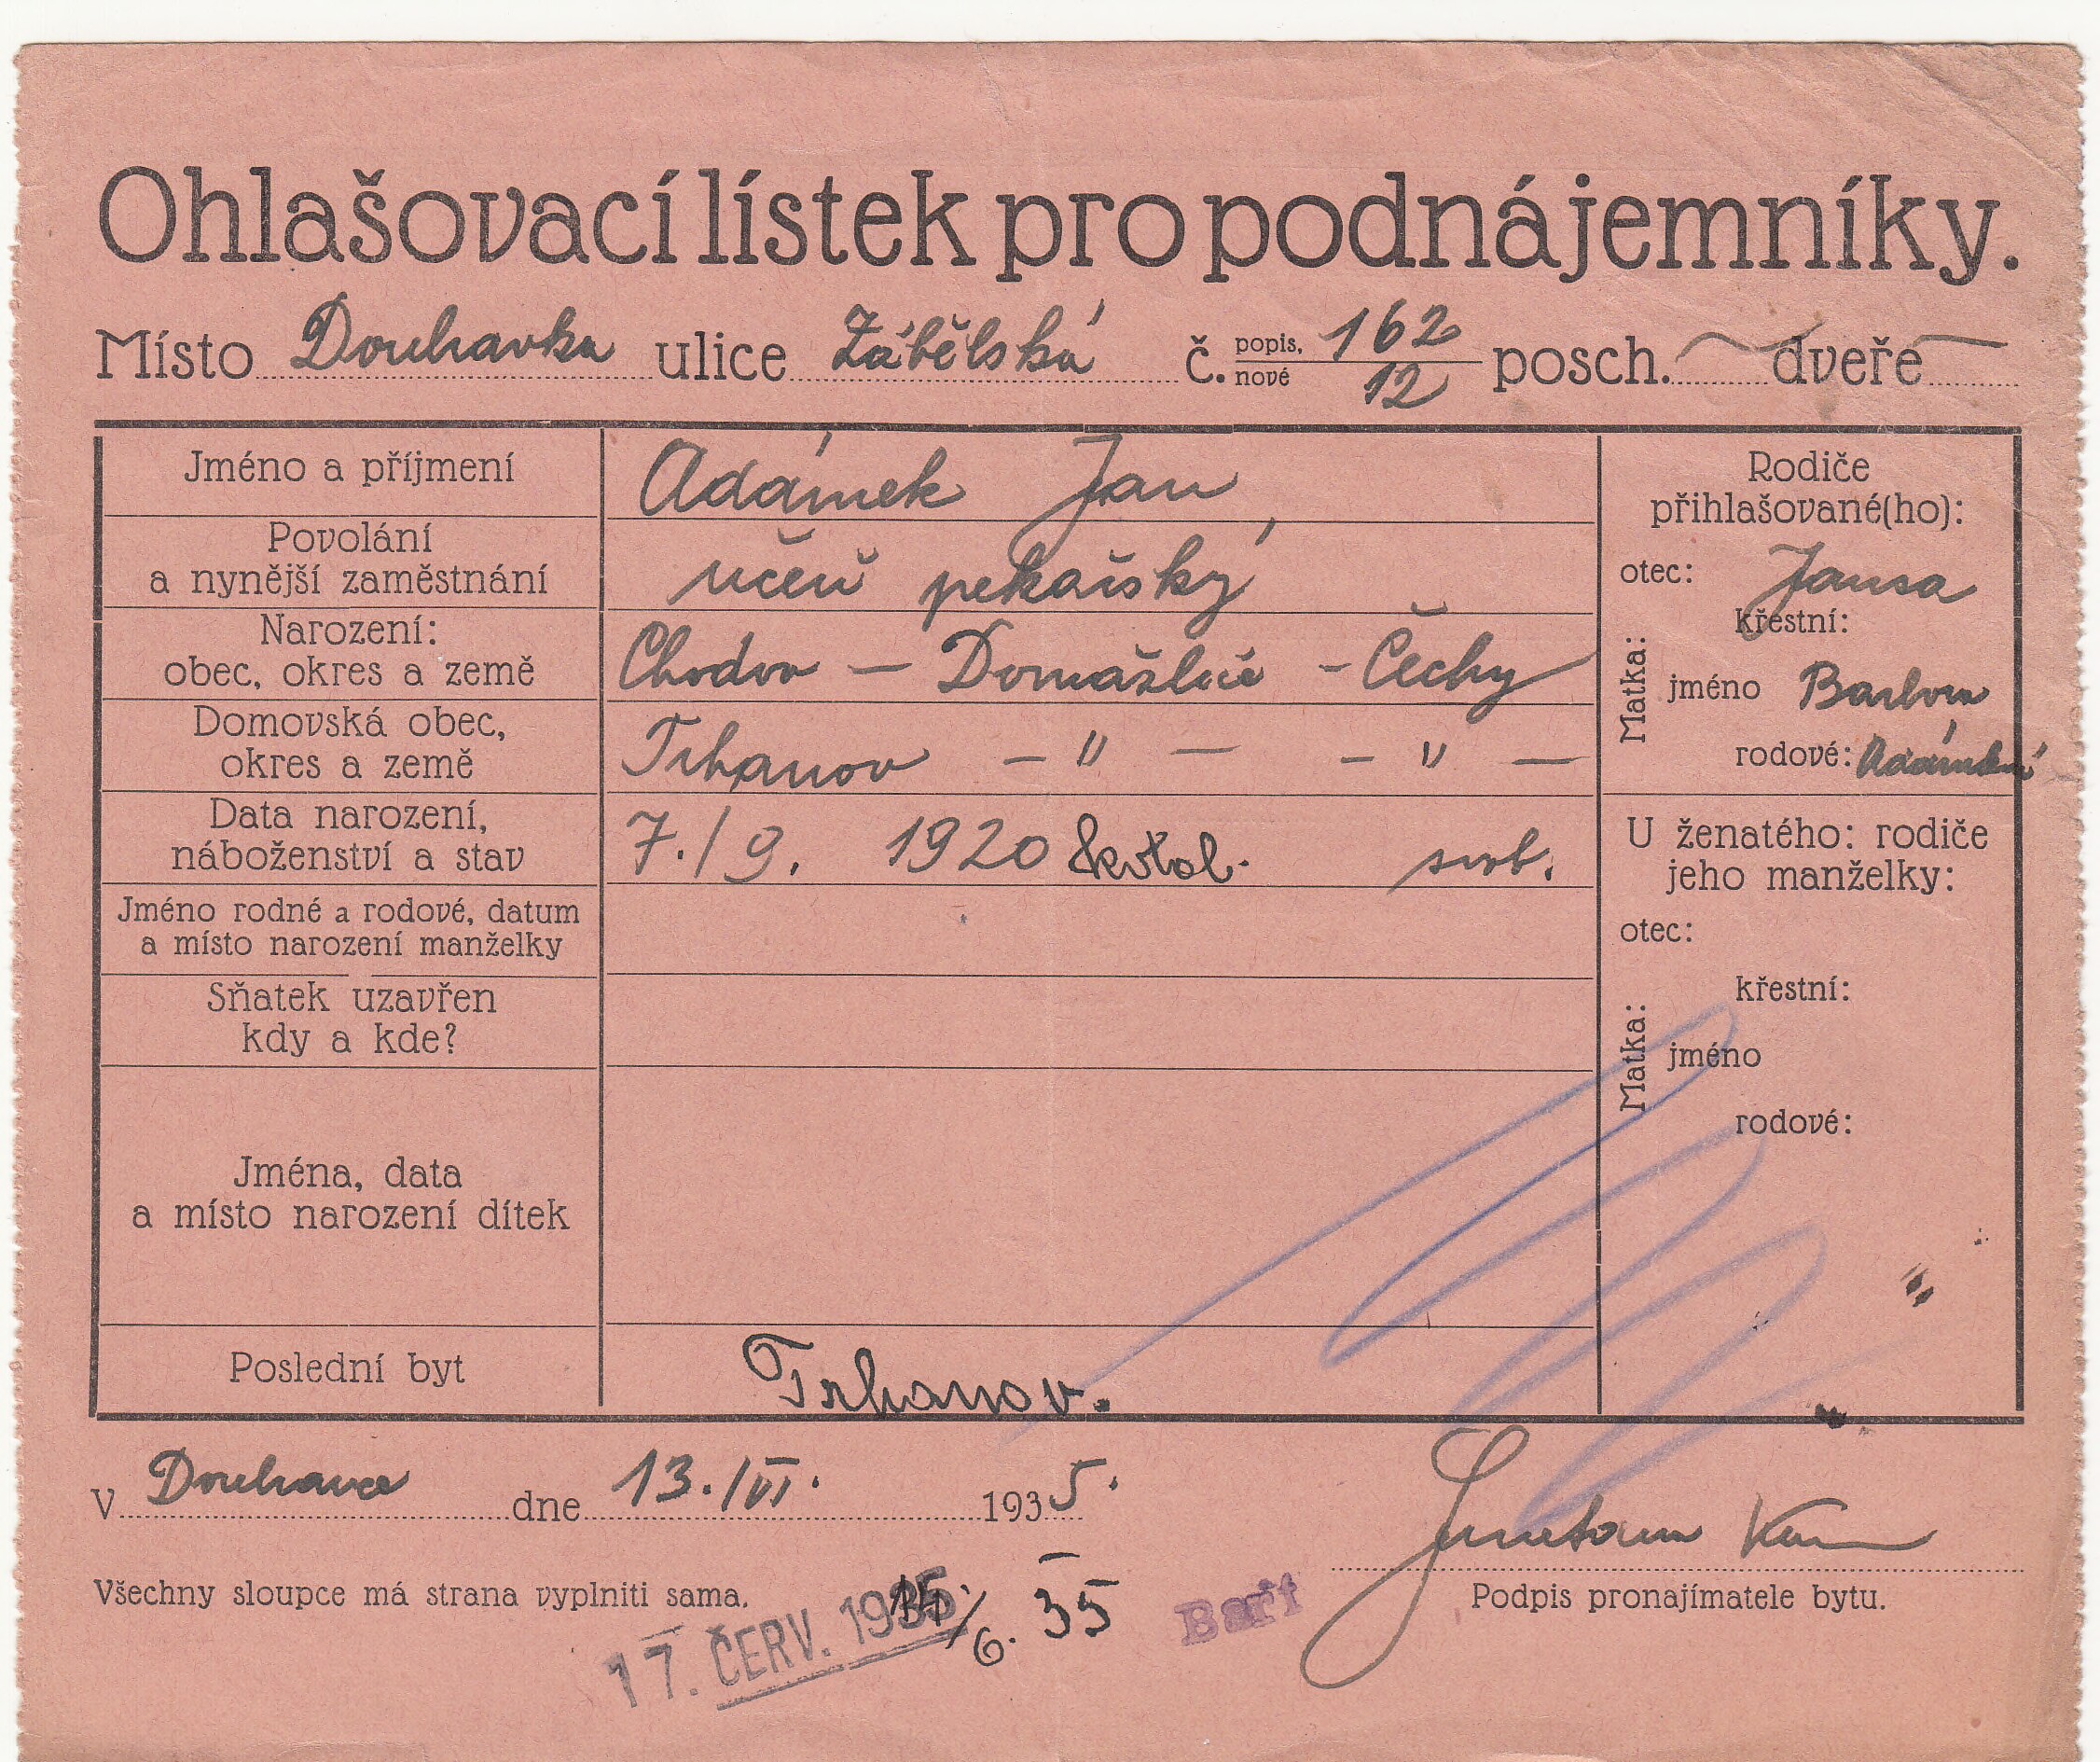 Ohlašovací lístek pro podnájemníky.
Místo Doubravka ulice Zábělská č. popis. 162 nové 12 posch. — dveře —
Jméno a příjmení Adámek Jan
Povolání a nynější zaměstnání učeň pekařský
Narození: obec, okres a země Chodov – Domažlice – Čechy
Domovská obec, okres a země Trhanov – " – – " –
Data narození, náboženství a stav 7./9. 1920 svob.
Jméno rodné a rodové, datum a místo narození manželky
Sňatek uzavřen kdy a kde?
Jména, data a místo narození dítek
Poslední byt Trhanov.
Rodiče
přihlašované(ho):
otec:
Matka:
křestní:
jméno Barbora
rodové: Adámková
U ženatého: rodiče
jeho manželky:
otec:
Matka:
křestní:
jméno
rodové:
V Doubravce dne 13./VI. 1935.
Všechny sloupce má strana vyplniti sama.
Podpis pronajímatele bytu.
17. ČERV. 1935
6. 35